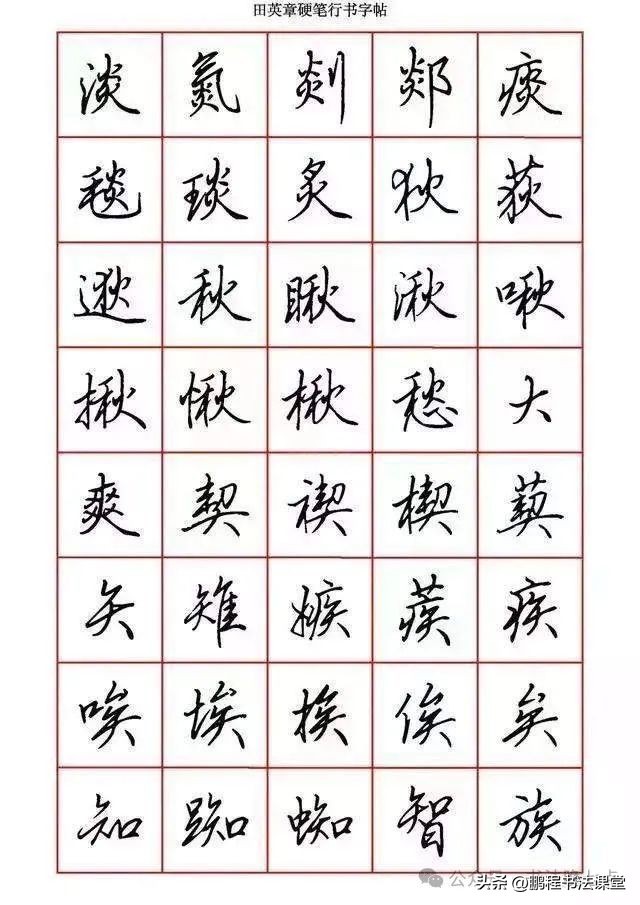 田英章硬笔行书字帖
淡氮剡郯痰
毯琰炙狄荻
逖秋瞅湫啾
揪愀楸愁大
爽契禊楔葜
矢雉嫉蒺疾
唉埃挨俟矣
知踟蜘智族
公众号
头条@鹏程书法课堂